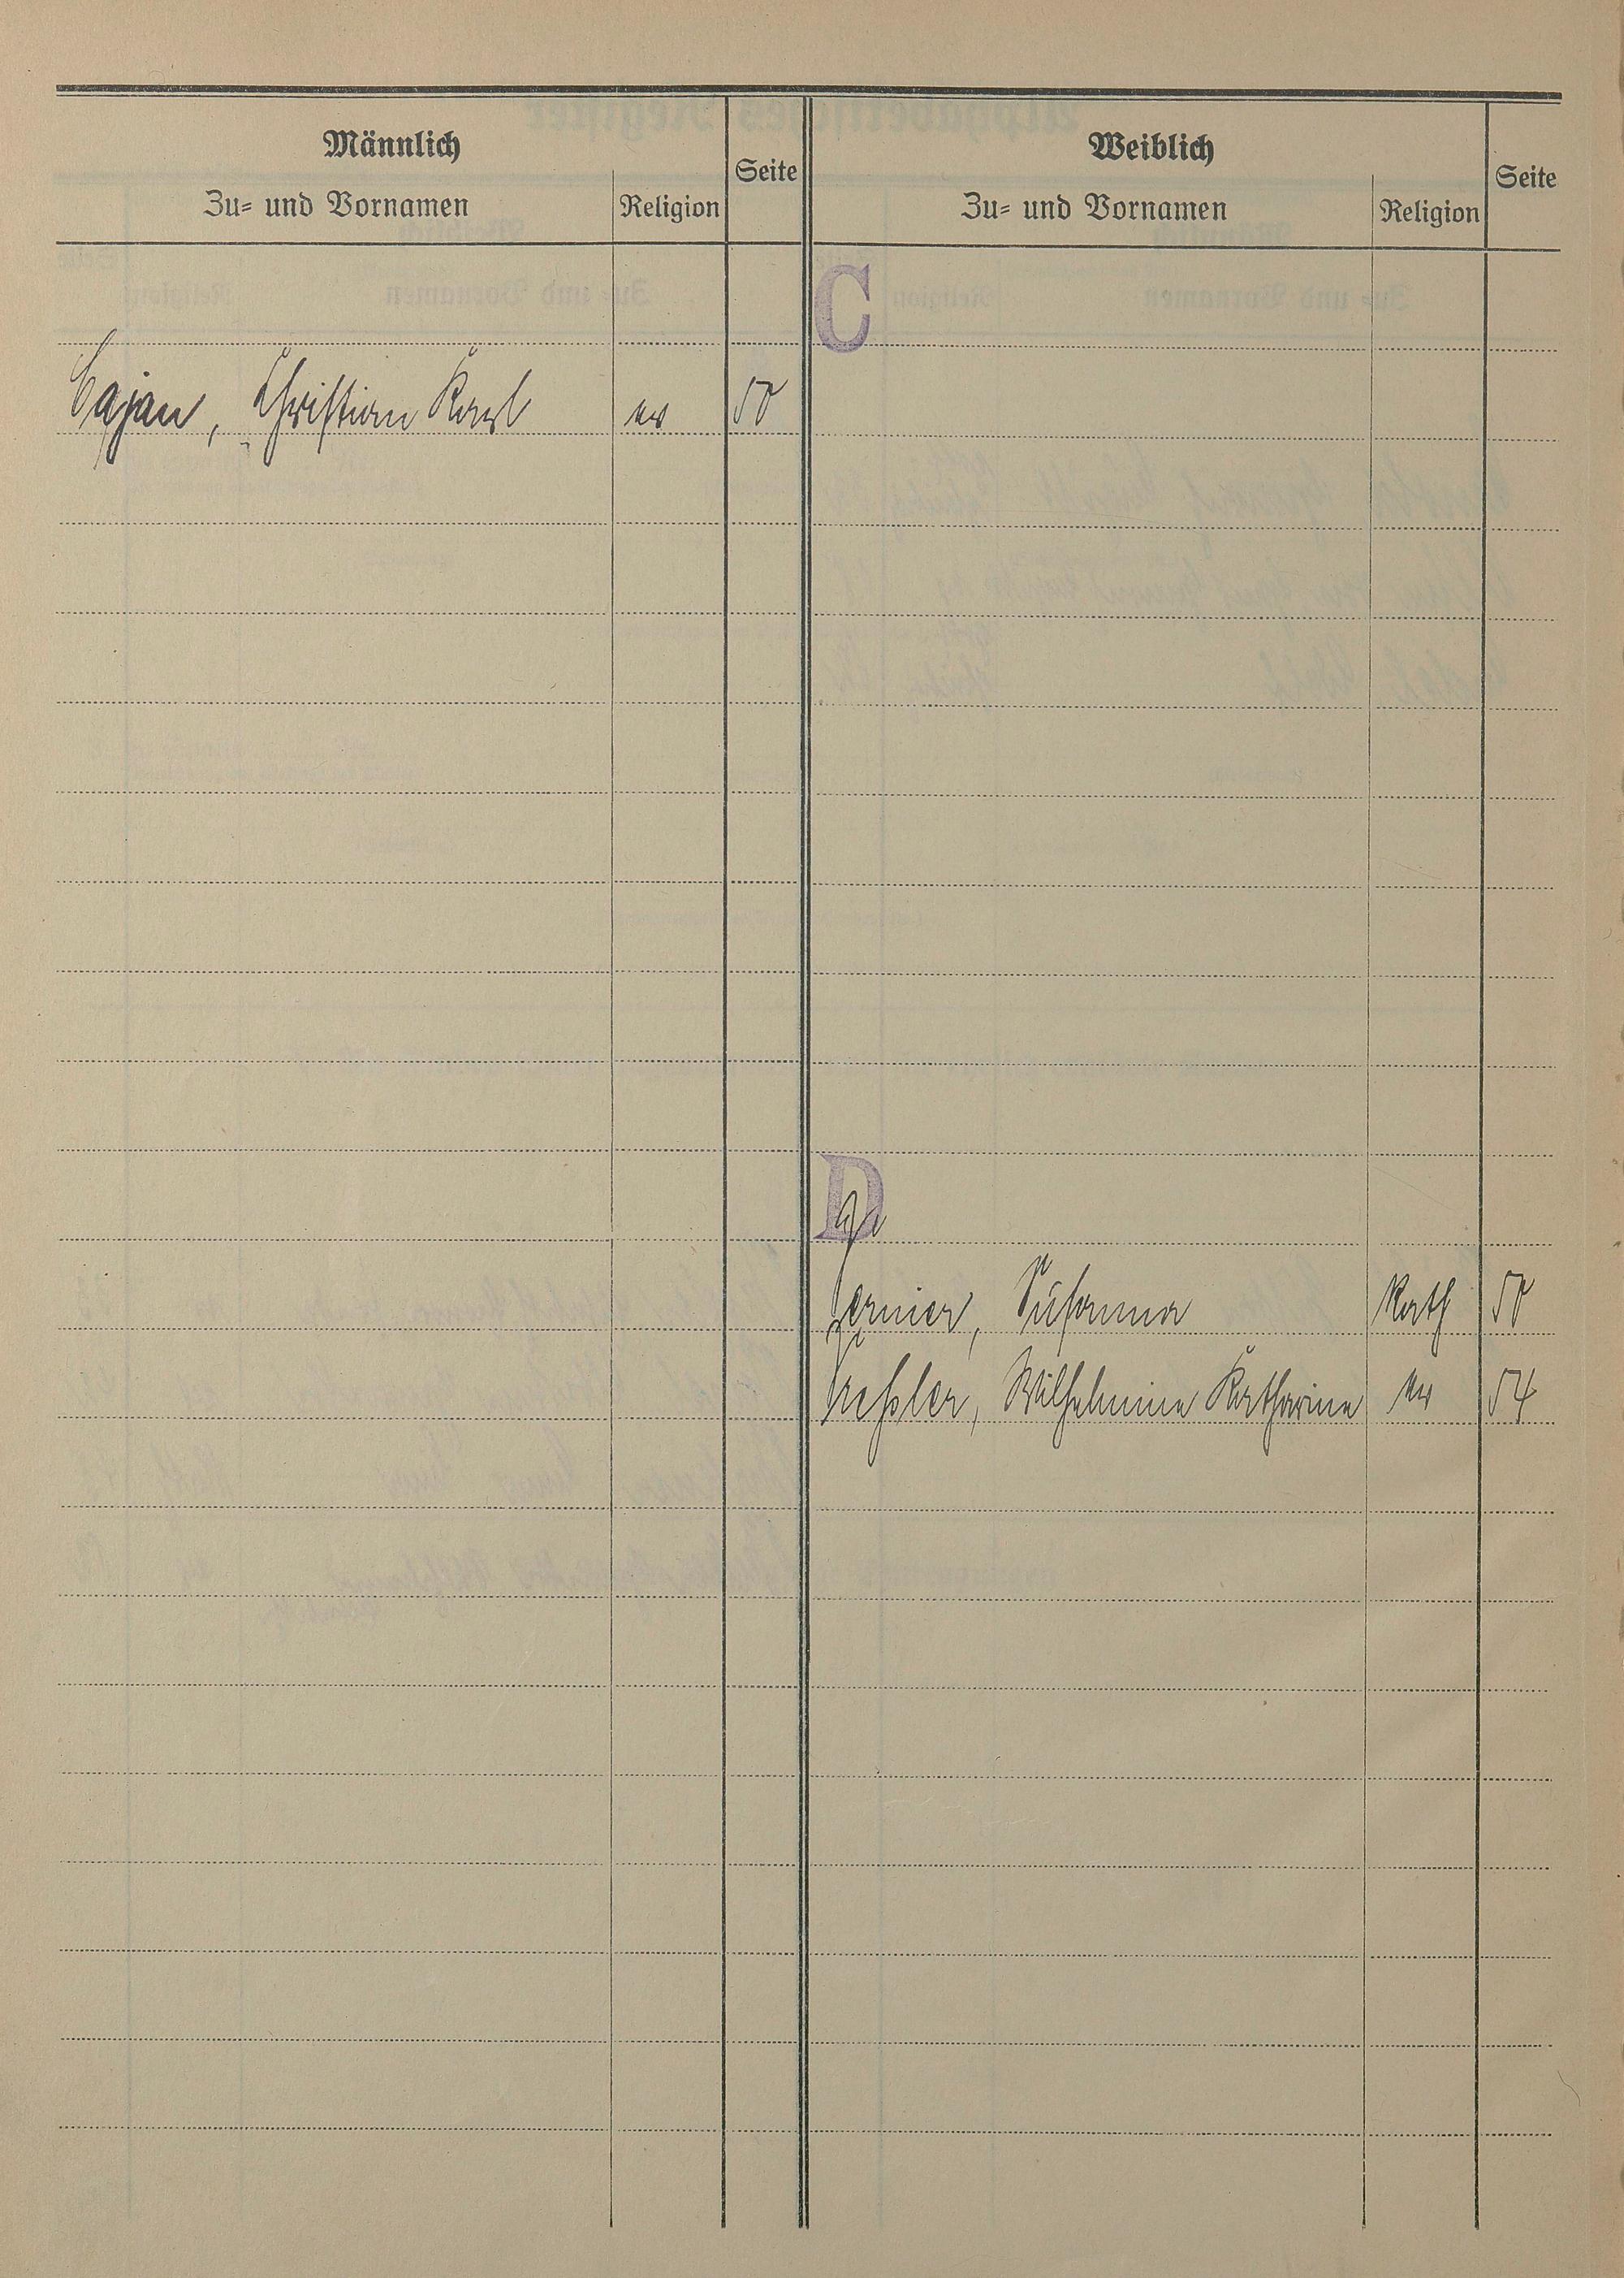 Männlich
Zu- und Vornamen
Religion
Seite
Weiblich
Zu- und Vornamen
Religion
Seite
C
Cajan, Christian Karl ev 50
D
Susanna Kath 50
Wilhelmine Katharina ev 54